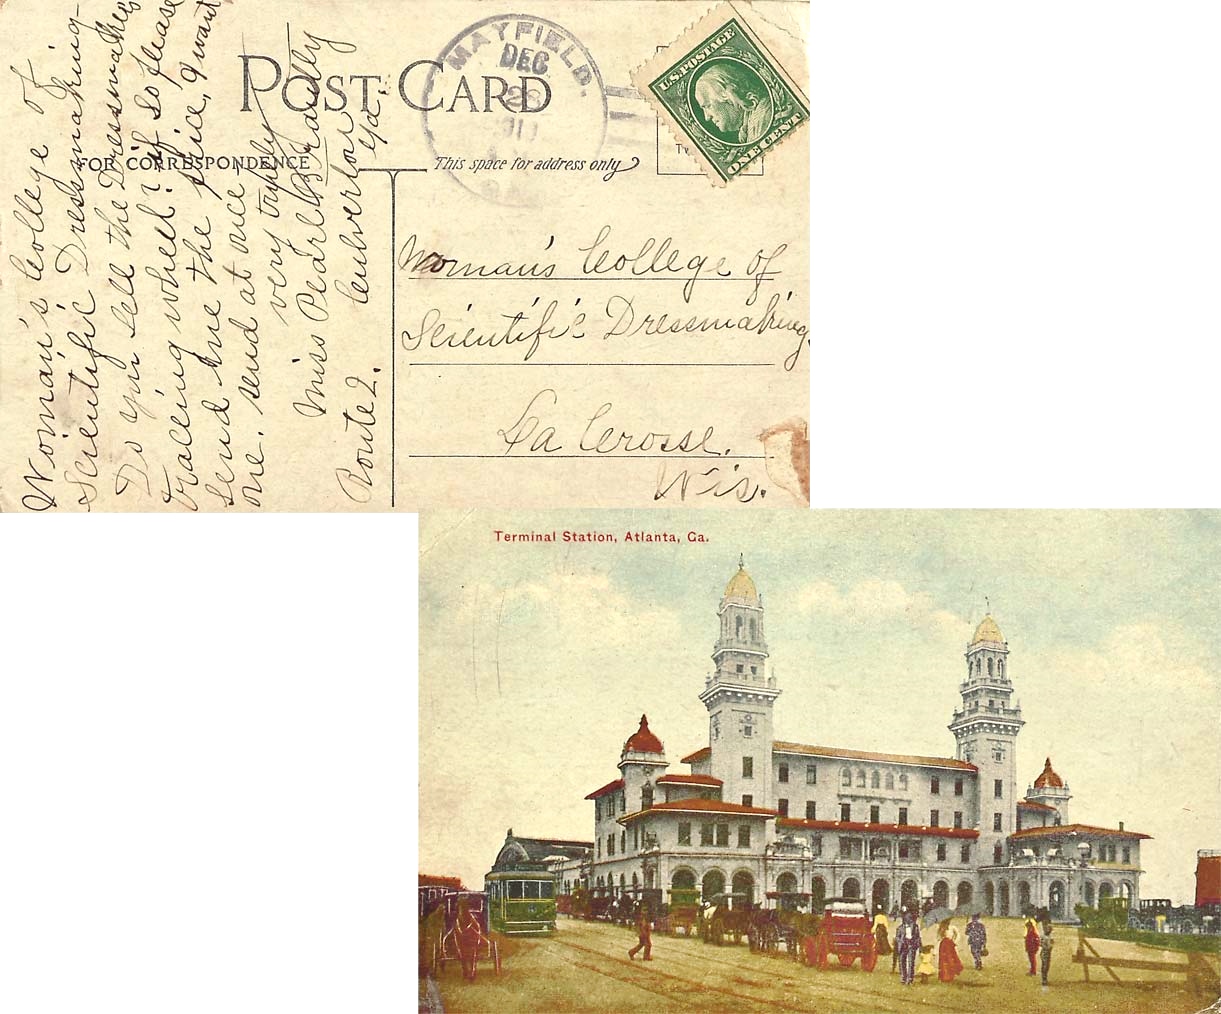 POST CARD
MAYFIELD.
DEC
28
U.S. POSTAGE
ONE CENT
FOR CORRESPONDENCE
This space for address only
Woman's College of
Scientific Dressmaking-
Do you sell the Dressmakers
tracing wheel? if so please
send me the price, I want
one. send at once
very truly
Miss Pearl Bradley
Route 2. Culverton
Ga.
Woman's College of
Scientific Dressmaking.
La Crosse.
Wis.
Terminal Station, Atlanta, Ga.